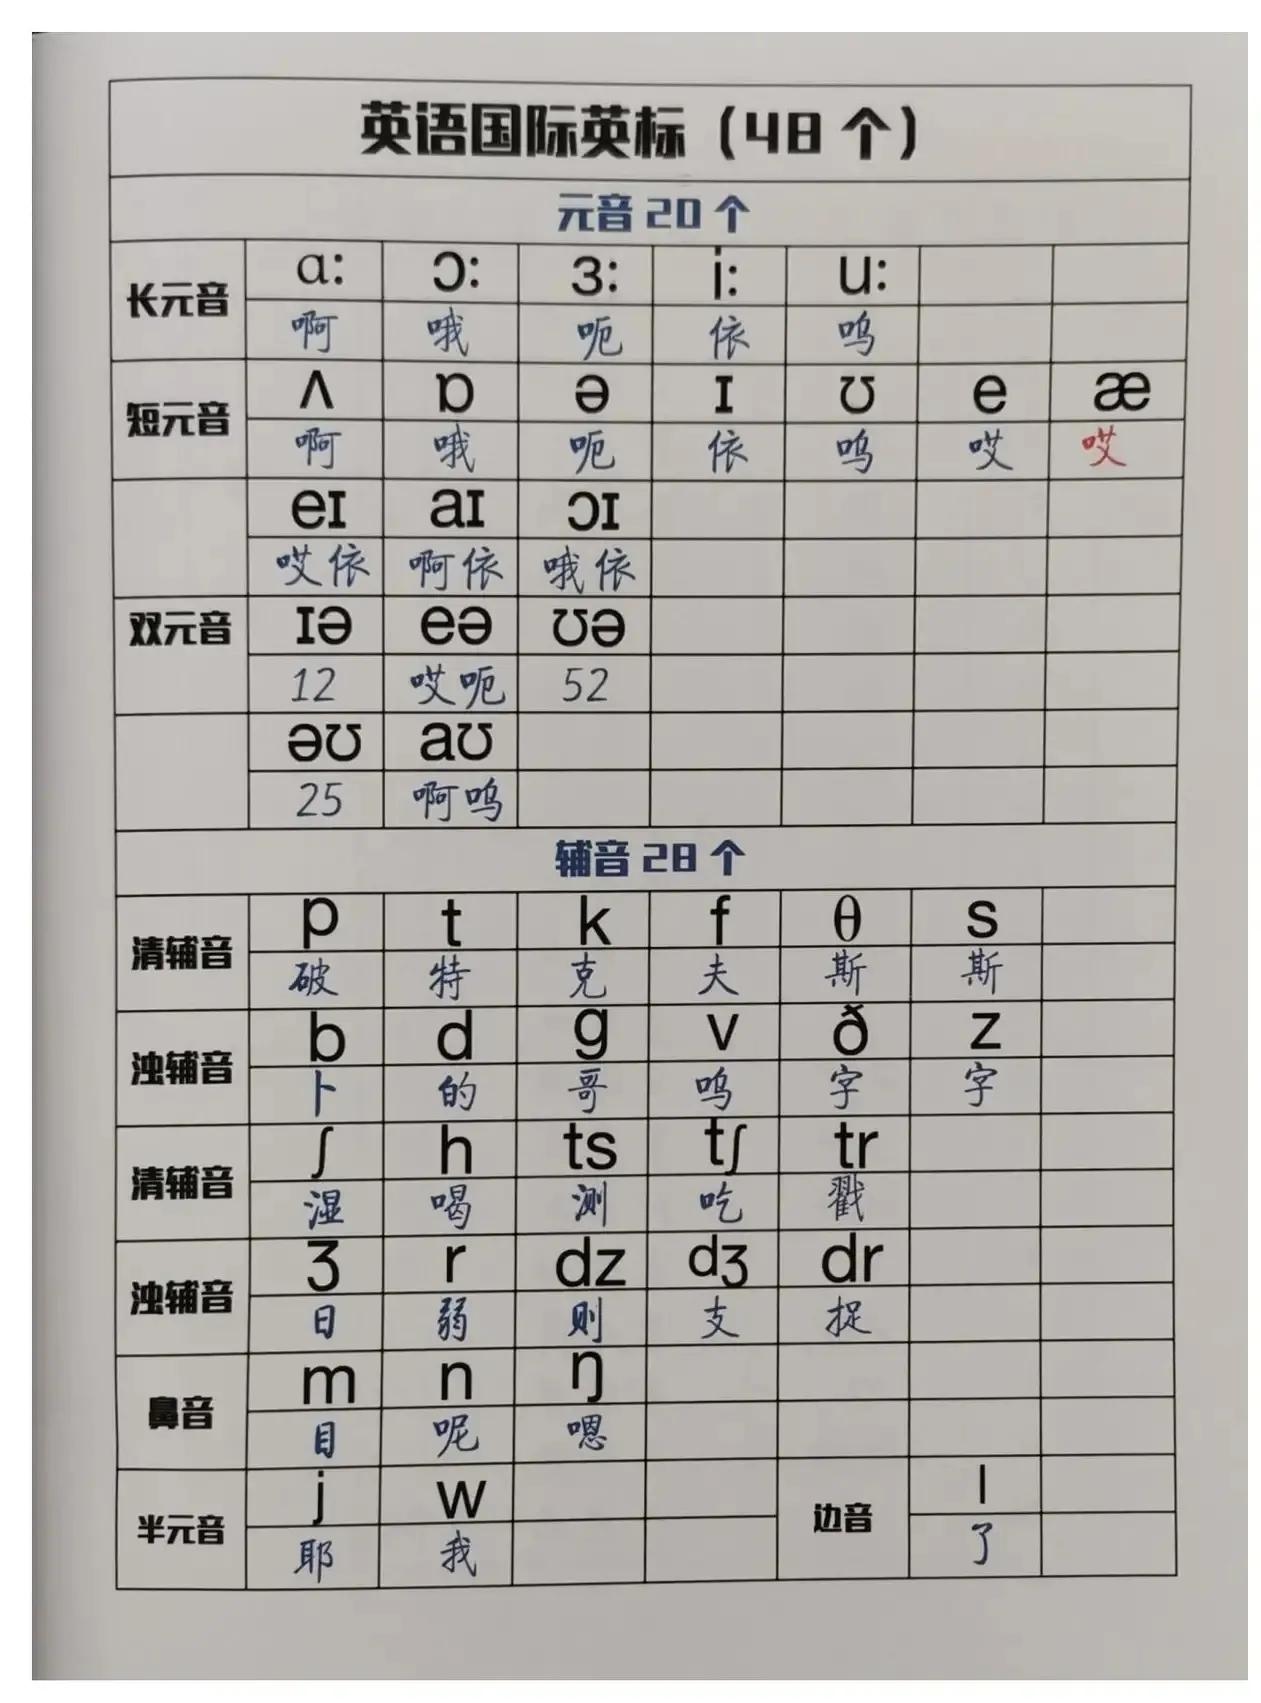 英语国际英标（48个）
元音 20 个
长元音 ɑ: ɔ: ɜ: i: u:
啊 哦 呃 依 呜
短元音 ʌ ɒ ə ɪ ʊ e æ
啊 哦 呃 依 呜 哎 哎
eɪ aɪ ɔɪ
哎依 啊依 哦依
双元音 ɪə eə ʊə
12 哎呃 52
əʊ aʊ
25 啊呜
辅音 28 个
清辅音 p t k f θ s
破 特 克 夫 斯 斯
浊辅音 b d g v ð z
卜 的 哥 呜 字 字
清辅音 ʃ h ts tʃ tr
湿 喝 测 吃 戳
浊辅音 ʒ r dz dʒ dr
日 弱 则 支 捉
鼻音 m n ŋ
目 呢 嗯
半元音 j w 边音 l
耶 我 了